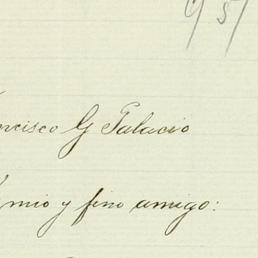 ncisco G Palacio
mio y fino amigo: